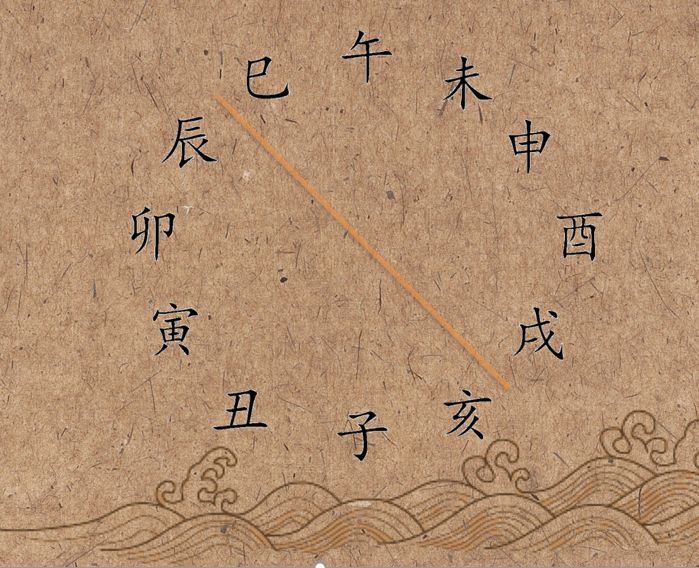 午
巳
未
辰
申
卯
酉
寅
戌
丑
亥
子